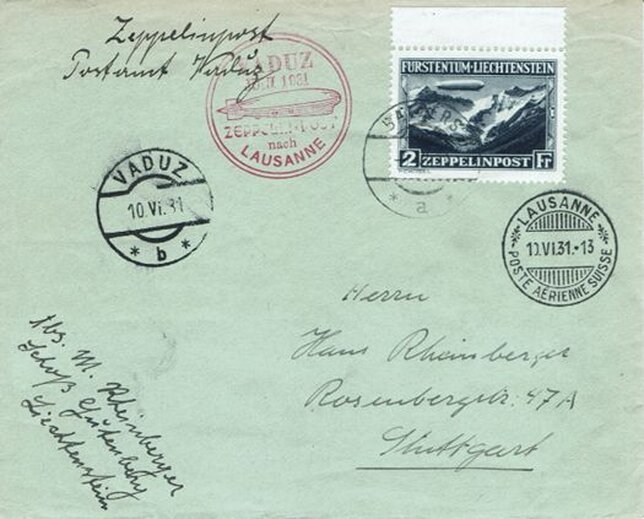 Zeppelinpost
Postamt Vaduz
VADUZ
1931
ZEPPELINPOST
nach
LAUSANNE
FÜRSTENTUM·LIECHTENSTEIN
2 ZEPPELINPOST Fr
BALZERS
* a *
VADUZ
10.VI.31
* b *
LAUSANNE
10.VI.31.-13
POSTE AÉRIENNE SUISSE
Herrn
Hans Rheinberger
Rosenbergstr. 47A
Stuttgart
Abs. M. Rheinberger
Schloß Gutenberg
Liechtenstein